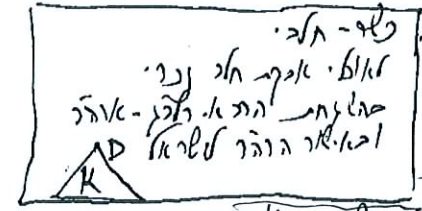 כשר - חלבי
לאוכלי אבקת חלב נכרי
בהשגחת הרב א. - ארה"ב
ובאישור הרה"ר לישראל
D
K